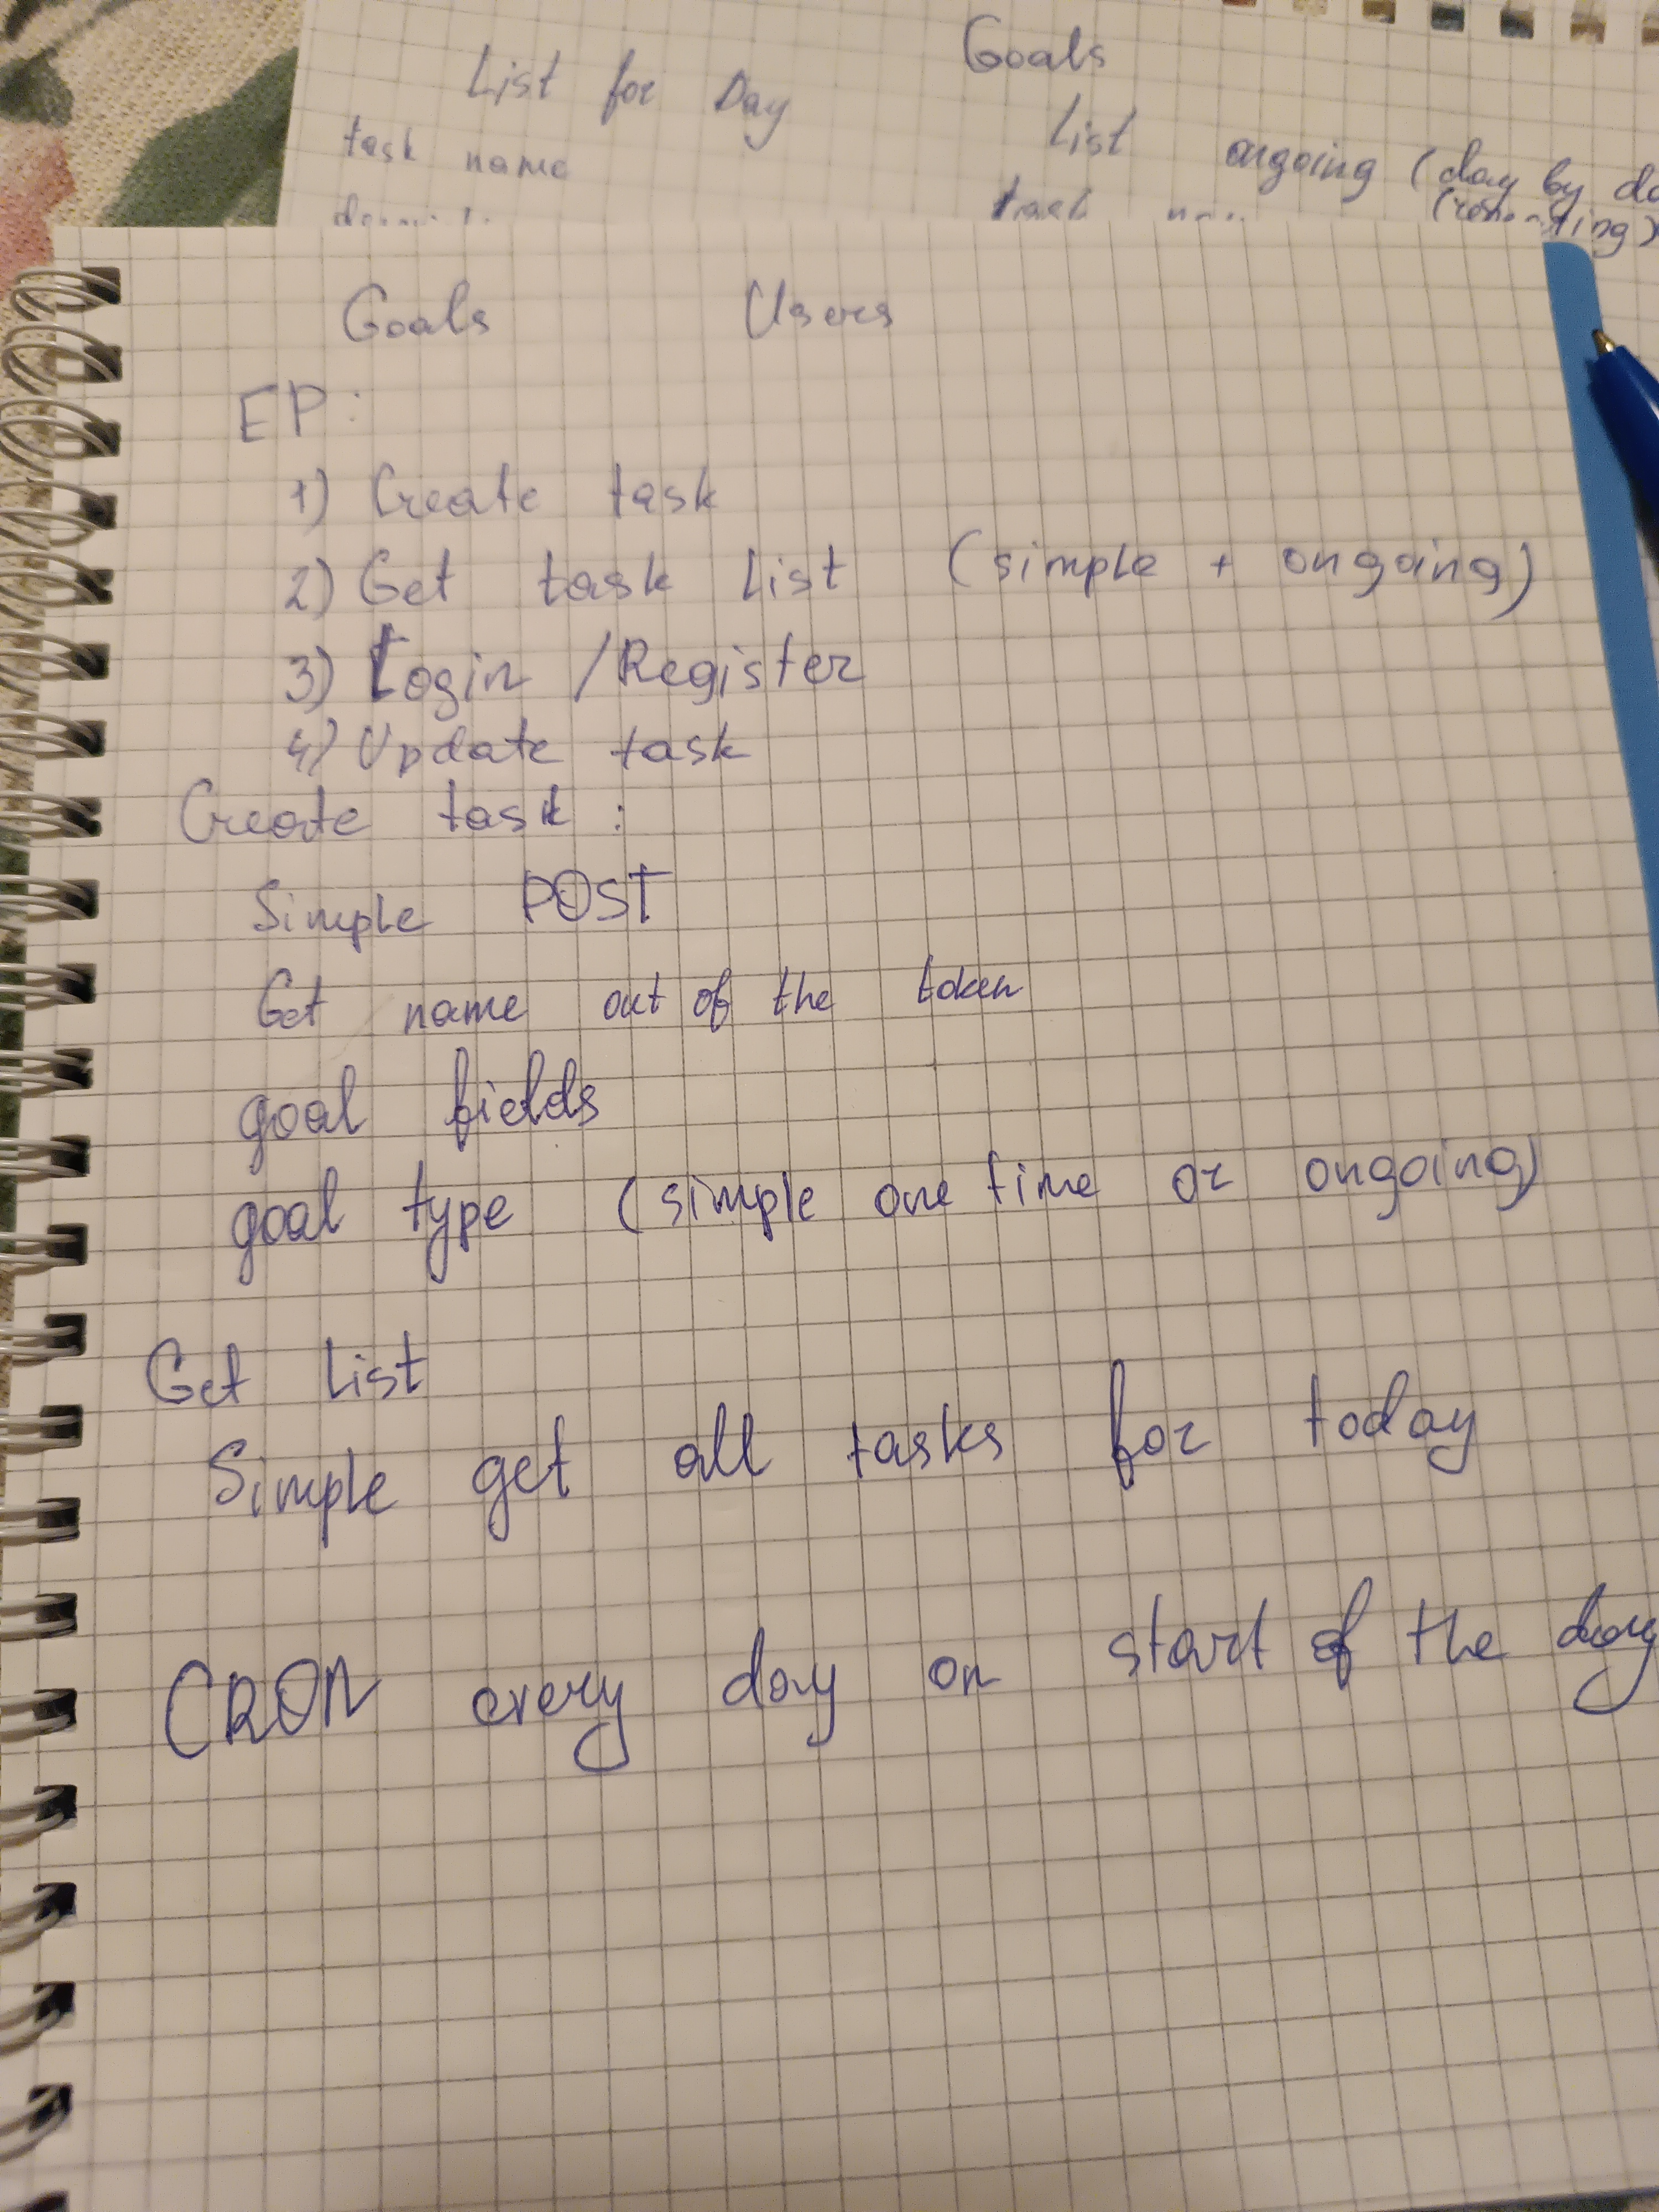 Goals
List for Day
List ongoing (day by
task name
task
Goals Users
EP:
1) Create task
2) Get task list (simple + ongoing)
3) Login / Register
4) Update task
Create task :
Simple POST
Get name out of the token
goal fields
goal type (simple one time or ongoing)
Get List
Simple get all tasks for today
CRON every day on start of the day